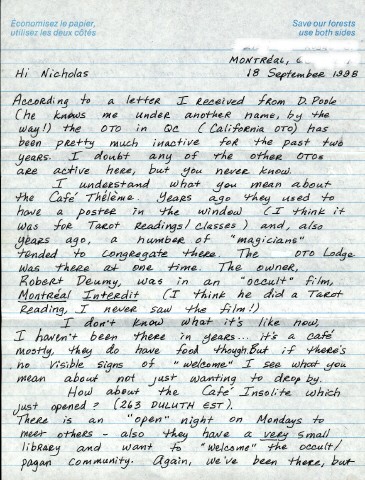 Économisez le papier,
utilisez les deux côtés
Save our forests
use both sides
MONTRÉAL,
18 September 1998
Hi Nicholas
According to a letter I received from D. Poole
(he knows me under another name, by the
way!) the OTO in QC (California OTO) has
been pretty much inactive for the past two
years. I doubt any of the other OTOs
are active here, but you never know.
I understand what you mean about
the Café Thélème. Years ago they used to
have a poster in the window (I think it
was for Tarot Readings/classes) and, also
years ago, a number of "magicians"
tended to congregate there. The OTO Lodge
was there at one time. The owner,
Robert Deumy, was in an "occult" film,
Montréal Interdit (I think he did a Tarot
Reading, I never saw the film!)
I don't know what it's like now,
I haven't been there in years... it's a café
mostly, they do have food though. but if there's
no visible signs of "welcome" I see what you
mean about not just wanting to drop by.
How about the Café Insolite which
just opened? (263 DULUTH EST).
There is an "open" night on Mondays to
meet others - also they have a very small
library and want to "welcome" the occult/
pagan community. Again, we've been there, but